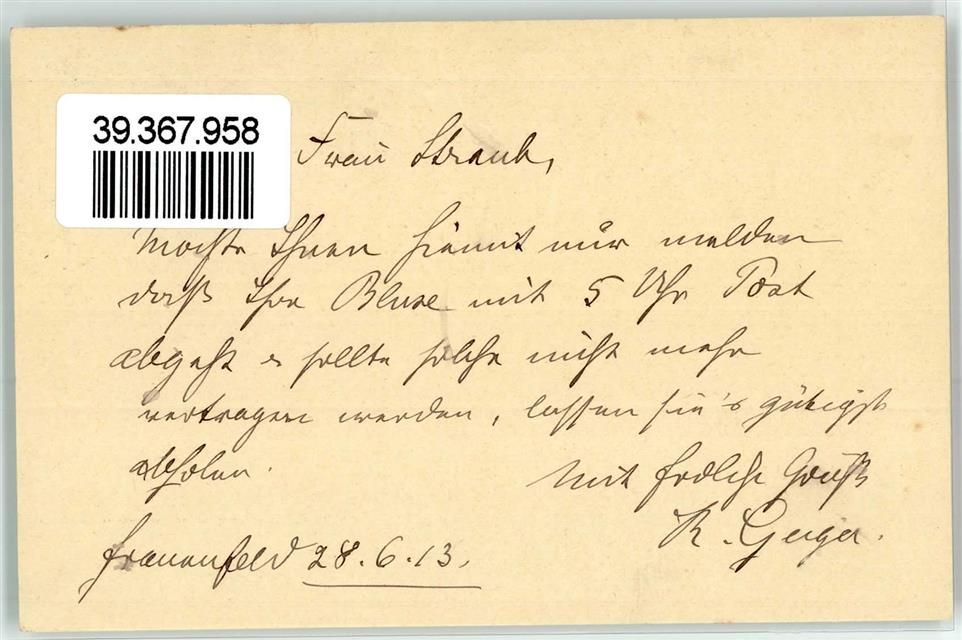 39.367.958
Frau Straub,
Möchte Ihnen hiemit nur melden
daß Ihre Bluse mit 5 Uhr Post
abgeht & sollte solche nicht mehr
vertragen werden, lassen sie's gütigst
abholen.
Mit frdlch. Gruß
R. Geiger.
Frauenfeld 28.6.13.